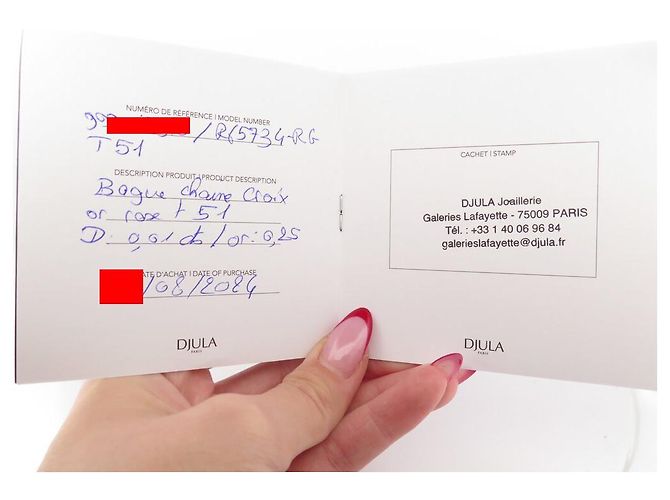 NUMÉRO DE RÉFÉRENCE | MODEL NUMBER
/R65734-RG
T 51
DESCRIPTION PRODUIT | PRODUCT DESCRIPTION
Bague chaine Croix
or rose t 51
D: 0,01 ct / or: 0,25
ATE D'ACHAT | DATE OF PURCHASE
/08/2024
DJULA
PARIS
CACHET | STAMP
DJULA Joaillerie
Galeries Lafayette - 75009 PARIS
Tél. : +33 1 40 06 96 84
galerieslafayette@djula.fr
DJULA
PARIS